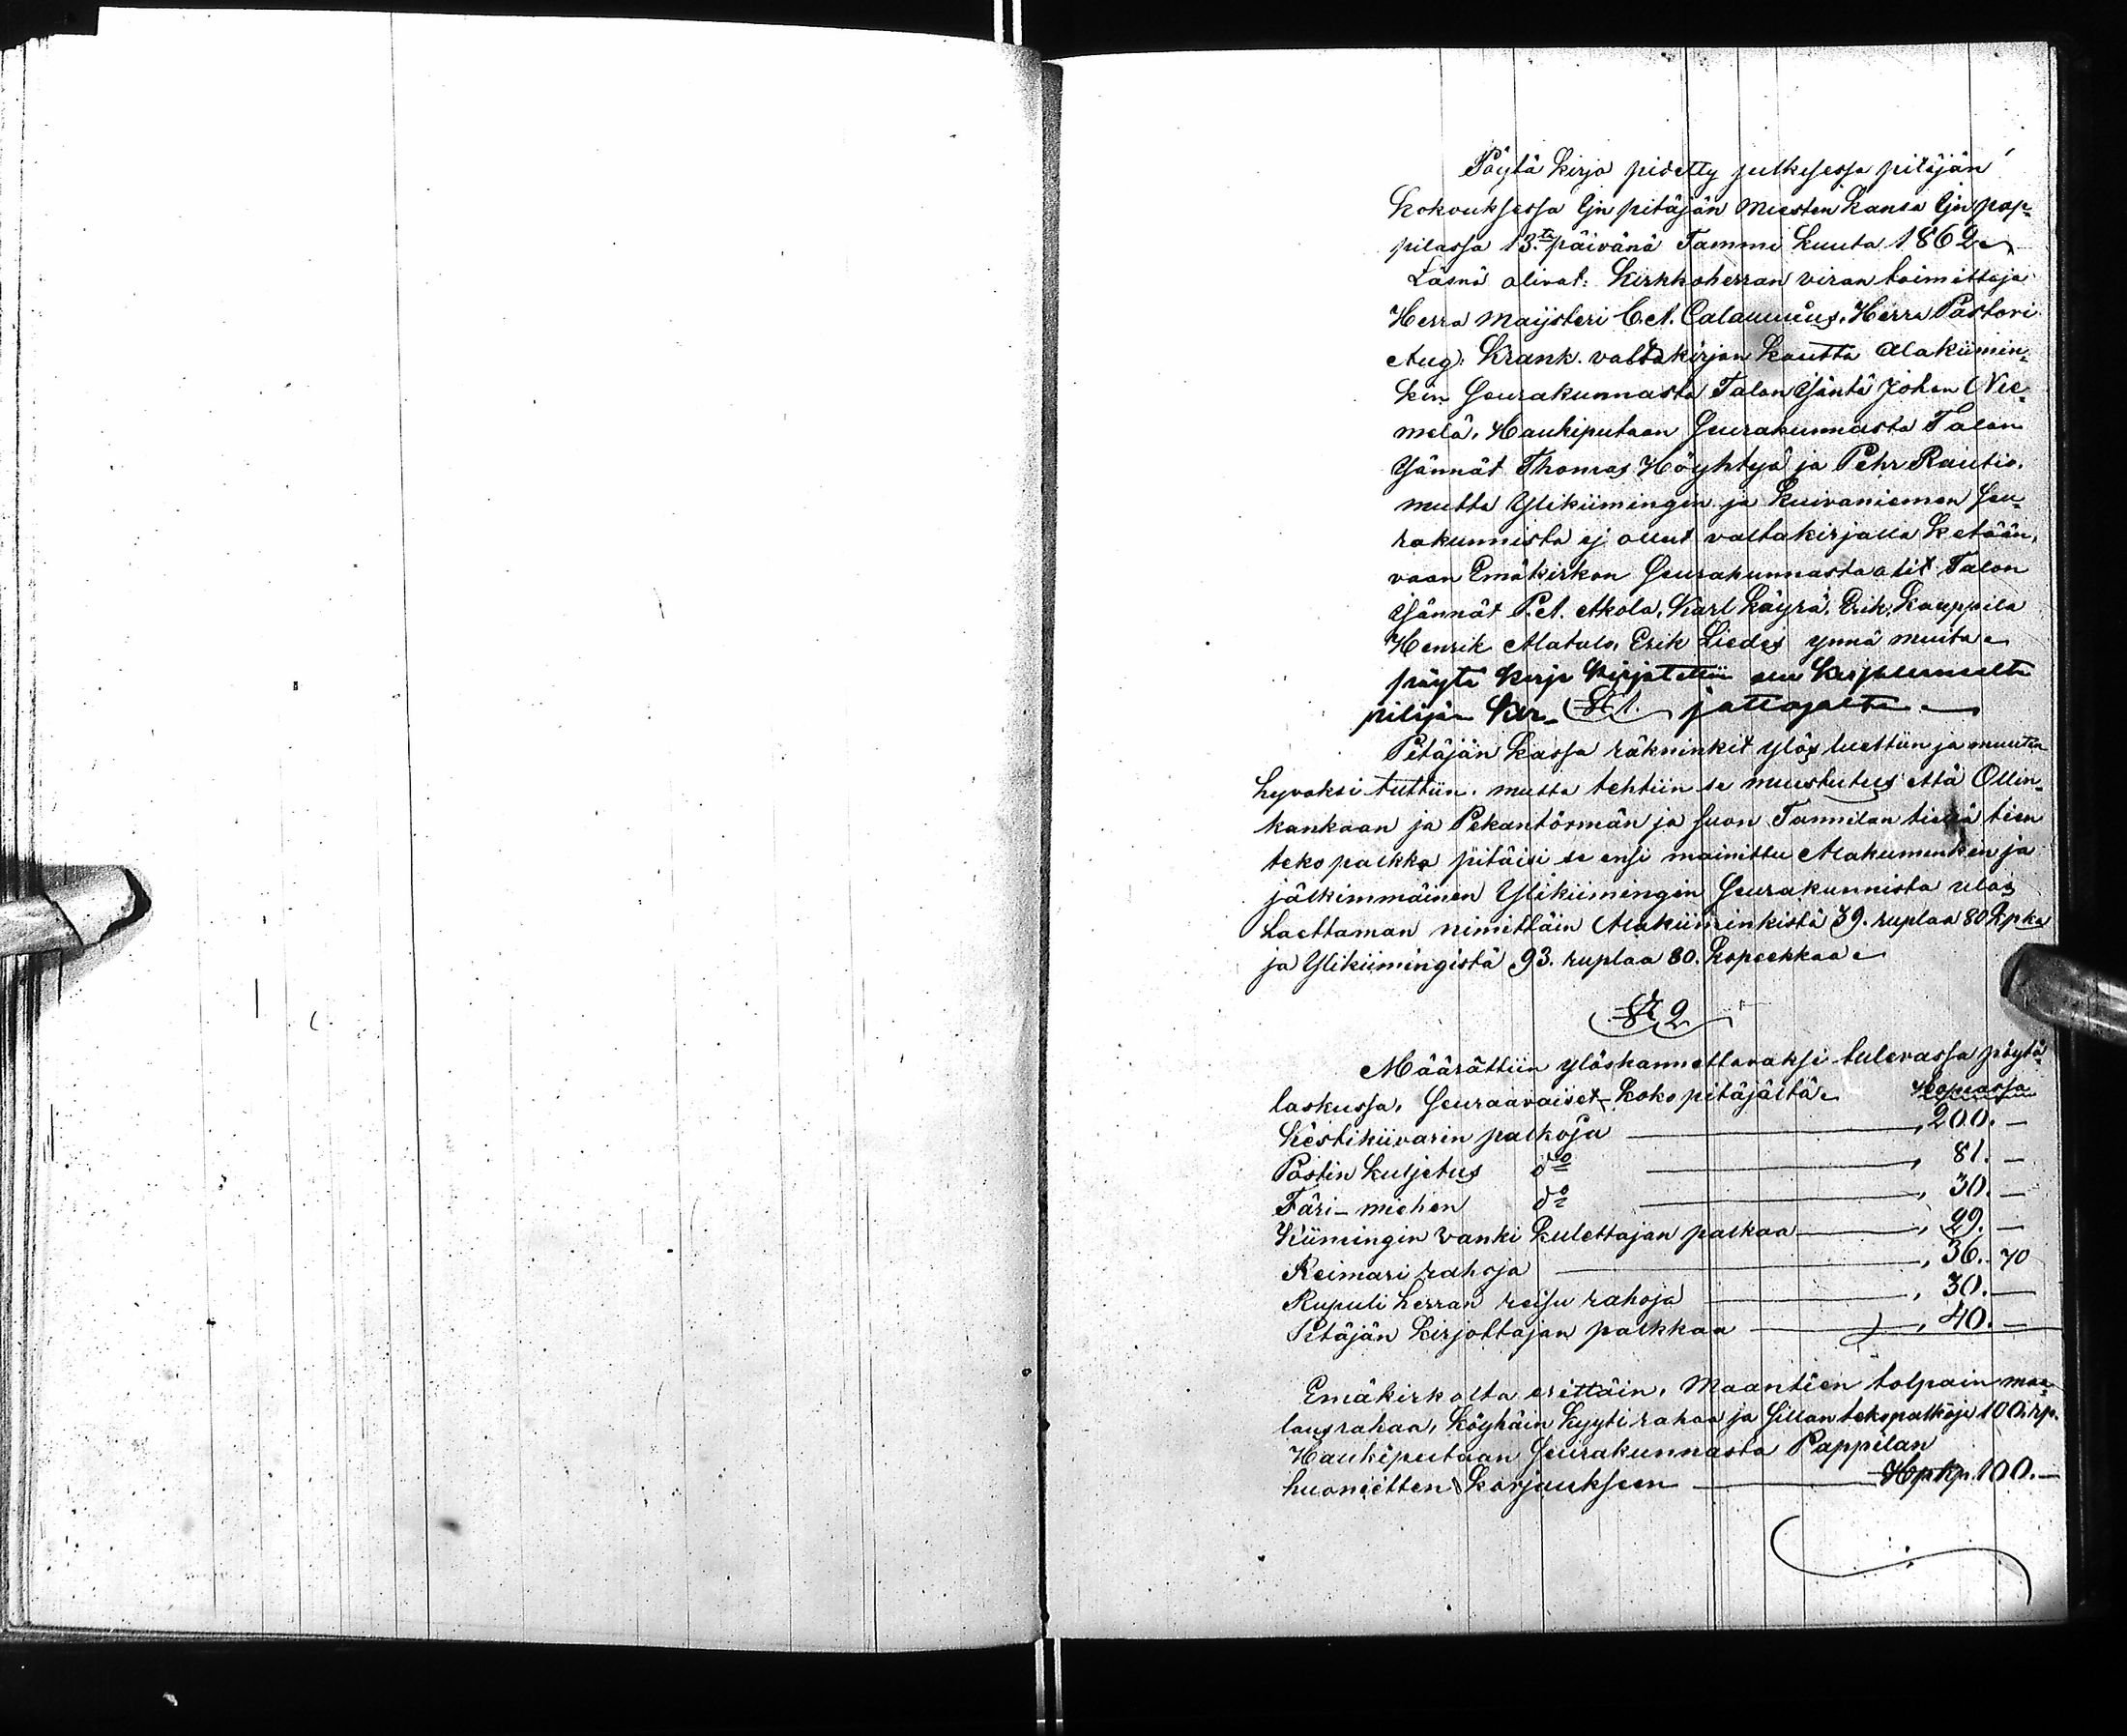 Pöytä Kirja pidetty julkisessa pitäjän
Kokouksessa Ijn pitäjän Miesten Kansa Ijn pap-
pilassa 13.ta päivänä Tammi Kuuta 1862
Läsnä olivat: Kirkkoherran viran toimittaja
Herra Maijsteri C.A. Calamnius, Herra Pastori
Aug. Krank. valtakirjan Kautta Alakiimin-
kin Seurakunnasta Talon Isäntä Johan Nie-
melä, Haukiputaan Seurakunnasta Talon
Isännät Thomas Höyhtyä ja Pehr Rautio,
mutta Ylikiimingin ja Kuivaniemen Seu-
rakunnista ej ollut valtakirjalla Ketään,
vaan Emäkirkon Seurakunnasta olit Talon
Isännät P.A. Akola, Karl Käyrä, Erik Kauppila
Henrik Alatalo, Erik Liedes ynnä muita
pöytä Kirja Kirjotettiin
pitäjän § 1.
Pitäjän Kassa räkninkit ylös luettiin ja muuten
hyvaksi tuttiin. mutta tehtiin se muustutus että Ollin-
kankaan ja Pekantörmän ja Suon Tannilan tiellä tien
teko palkka pitäisi se ensi mainittu Alakiiminken ja
jälkimmäinen Ylikiimingin Seurakunnista ulos
haettaman nimittäin Alakiiminkistä 39. ruplaa 80 Kpka
ja Ylikiimingistä 93. ruplaa 80. Kopeekkaa
§ 2
Määrättiin ylöskannettavaksi tulevassa pöytä
laskussa, Seuraavaiset Koko pitäjältä Hopiassa
Kestikiivarin palkoja 200. —
Postin Kuljetus do 81. —
Färi-miehen do 30. —
Kiimingin Vanki Kulettajan palkaa 29. —
Reimari rahoja 36. 70
Rupuli herran reisu rahoja 30. —
Pitäjän Kirjottajan palkkaa 40. —
Emäkirkolta erittäin, Maantien tolpain maa-
laus rahaa, Köyhäin Kyyti rahaa ja Sillan teko palkoja 100. rp.
Haukiputaan Seurakunnasta Pappilan
huonietten Korjaukseen Hp Rp. 100. —